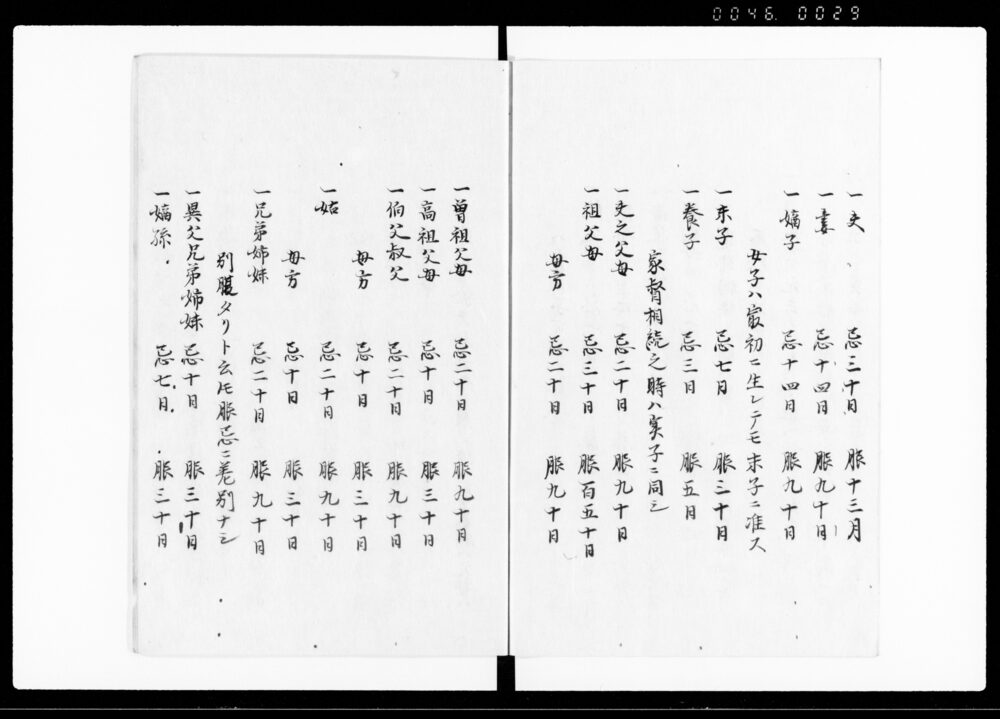 0046.0029
一夫 忌三十日 服十三月
一妻 忌十四日 服九十日
一嫡子 忌十四日 服九十日
女子ハ最初ニ生レテモ末子ニ准ス
一末子 忌七日 服三十日
一養子 忌三日 服五日
家督相続之時ハ実子ニ同シ
一夫之父母 忌二十日 服九十日
一祖父母 忌三十日 服百五十日
母方 忌二十日 服九十日
一曽祖父母 忌二十日 服九十日
一高祖父母 忌十日 服三十日
一伯父叔父 忌二十日 服九十日
母方 忌十日 服三十日
一姑 忌二十日 服九十日
母方 忌十日 服三十日
一兄弟姉妹 忌二十日 服九十日
別腹タリト云𪜈服忌ニ差別ナシ
一異父兄弟姉妹 忌十日 服三十日
一嫡孫 忌七日 服三十日